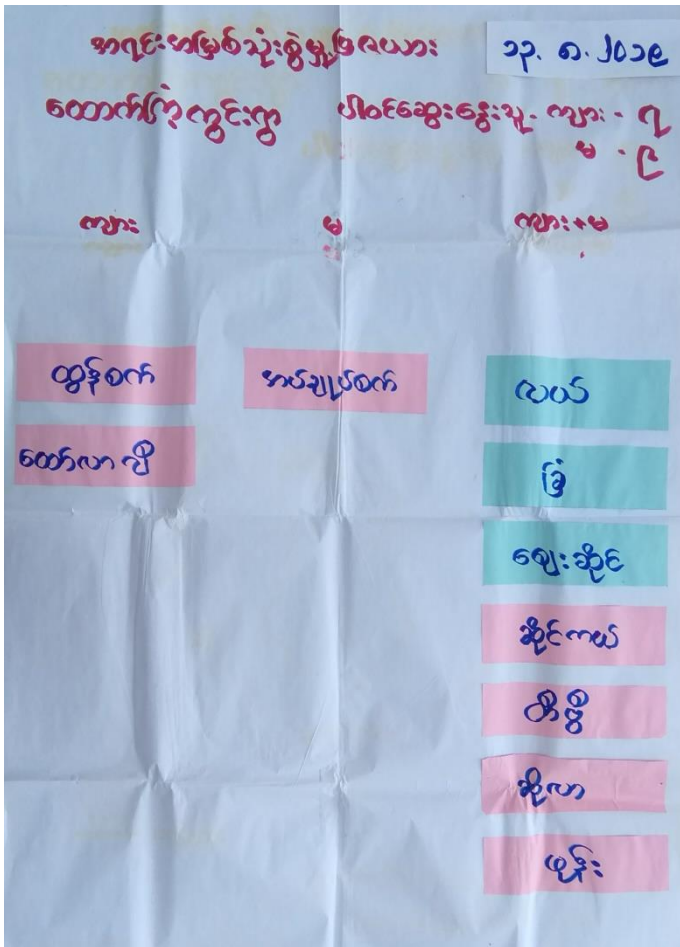 အရင်းအမြစ်သုံးစွဲမှုပြဇယား ၁၃.၈.၂၀၁၉
ထောက်ကြံ့ကွင်းရွာ ပါဝင်ဆွေးနွေးသူ- ကျား - ၇
မ - ၉
ကျား မ ကျား+မ
ထွန်စက် အပ်ချုပ်စက် လယ်
ထော်လာဂျီ ခြံ
ဈေးဆိုင်
ဆိုင်ကယ်
တီဗွီ
ဆိုလာ
ဖုန်း